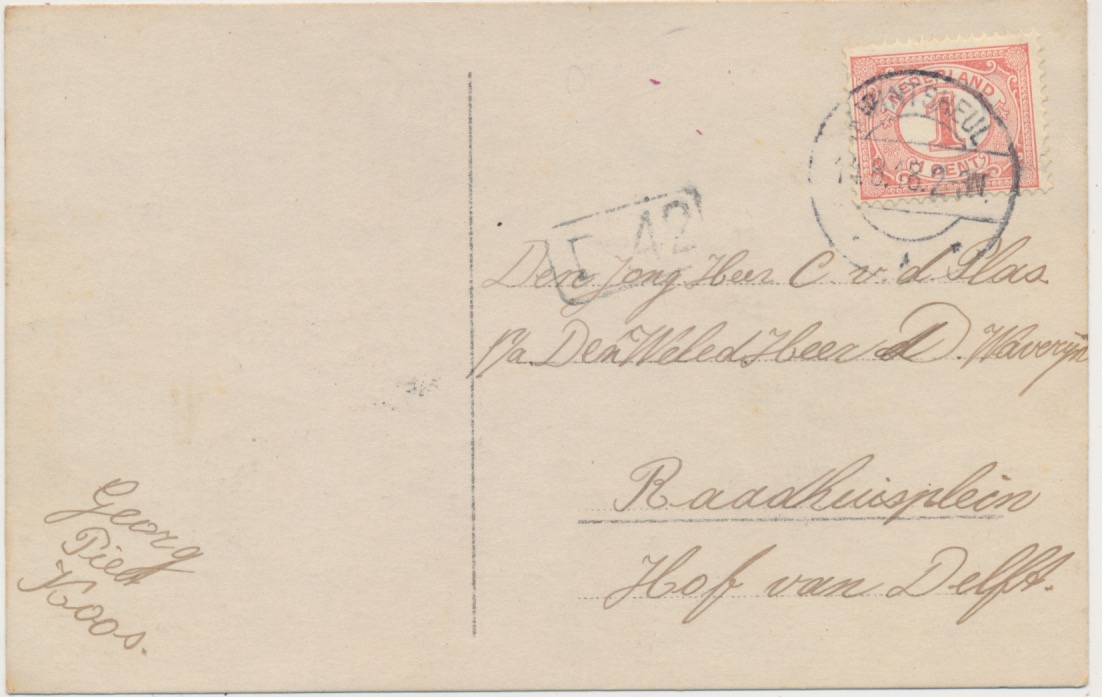 NEDERLAND
1
1 CENT
KWINTSHEUL
8.18.2
42
Den Jong Heer C. v. d Plas
p/a Den WelEd Heer D. Waverijn
Raadhuisplein
Hof van Delft.
Georg
Piet
Koos.